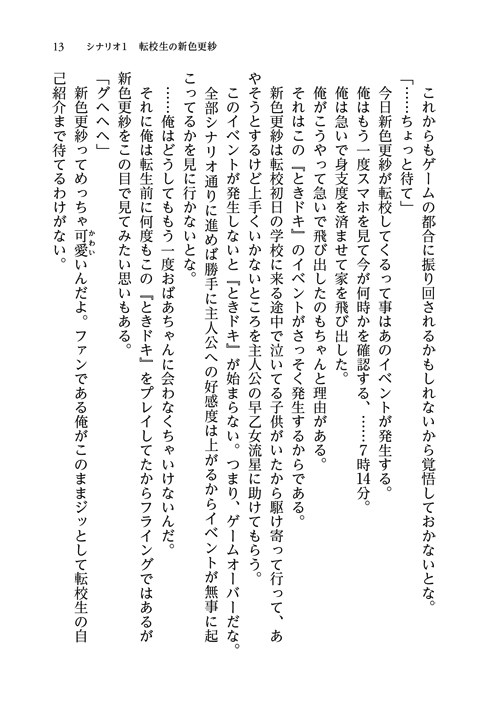 13　シナリオ1　転校生の新色更紗
　これからもゲームの都合に振り回されるかもしれないから覚悟しておかないとな。
「……ちょっと待て」
　今日新色更紗が転校してくるって事はあのイベントが発生する。
　俺はもう一度スマホを見て今が何時かを確認する、……7時14分。
　俺は急いで身支度を済ませて家を飛び出した。
　俺がこうやって急いで飛び出したのもちゃんと理由がある。
　それはこの『ときドキ』のイベントがさっそく発生するからである。
　新色更紗は転校初日の学校に来る途中で泣いてる子供がいたから駆け寄って行って、あ
やそうとするけど上手くいかないところを主人公の早乙女流星に助けてもらう。
　このイベントが発生しないと『ときドキ』が始まらない。つまり、ゲームオーバーだな。
　全部シナリオ通りに進めば勝手に主人公への好感度は上がるからイベントが無事に起
こってるかを見に行かないとな。
　……俺はどうしてももう一度おばあちゃんに会わなくちゃいけないんだ。
　それに俺は転生前に何度もこの『ときドキ』をプレイしてたからフライングではあるが
新色更紗をこの目で見てみたい思いもある。
「グヘヘヘ」
　新色更紗ってめっちゃ可愛いんだよ。ファンである俺がこのままジッとして転校生の自
かわい
己紹介まで待てるわけがない。